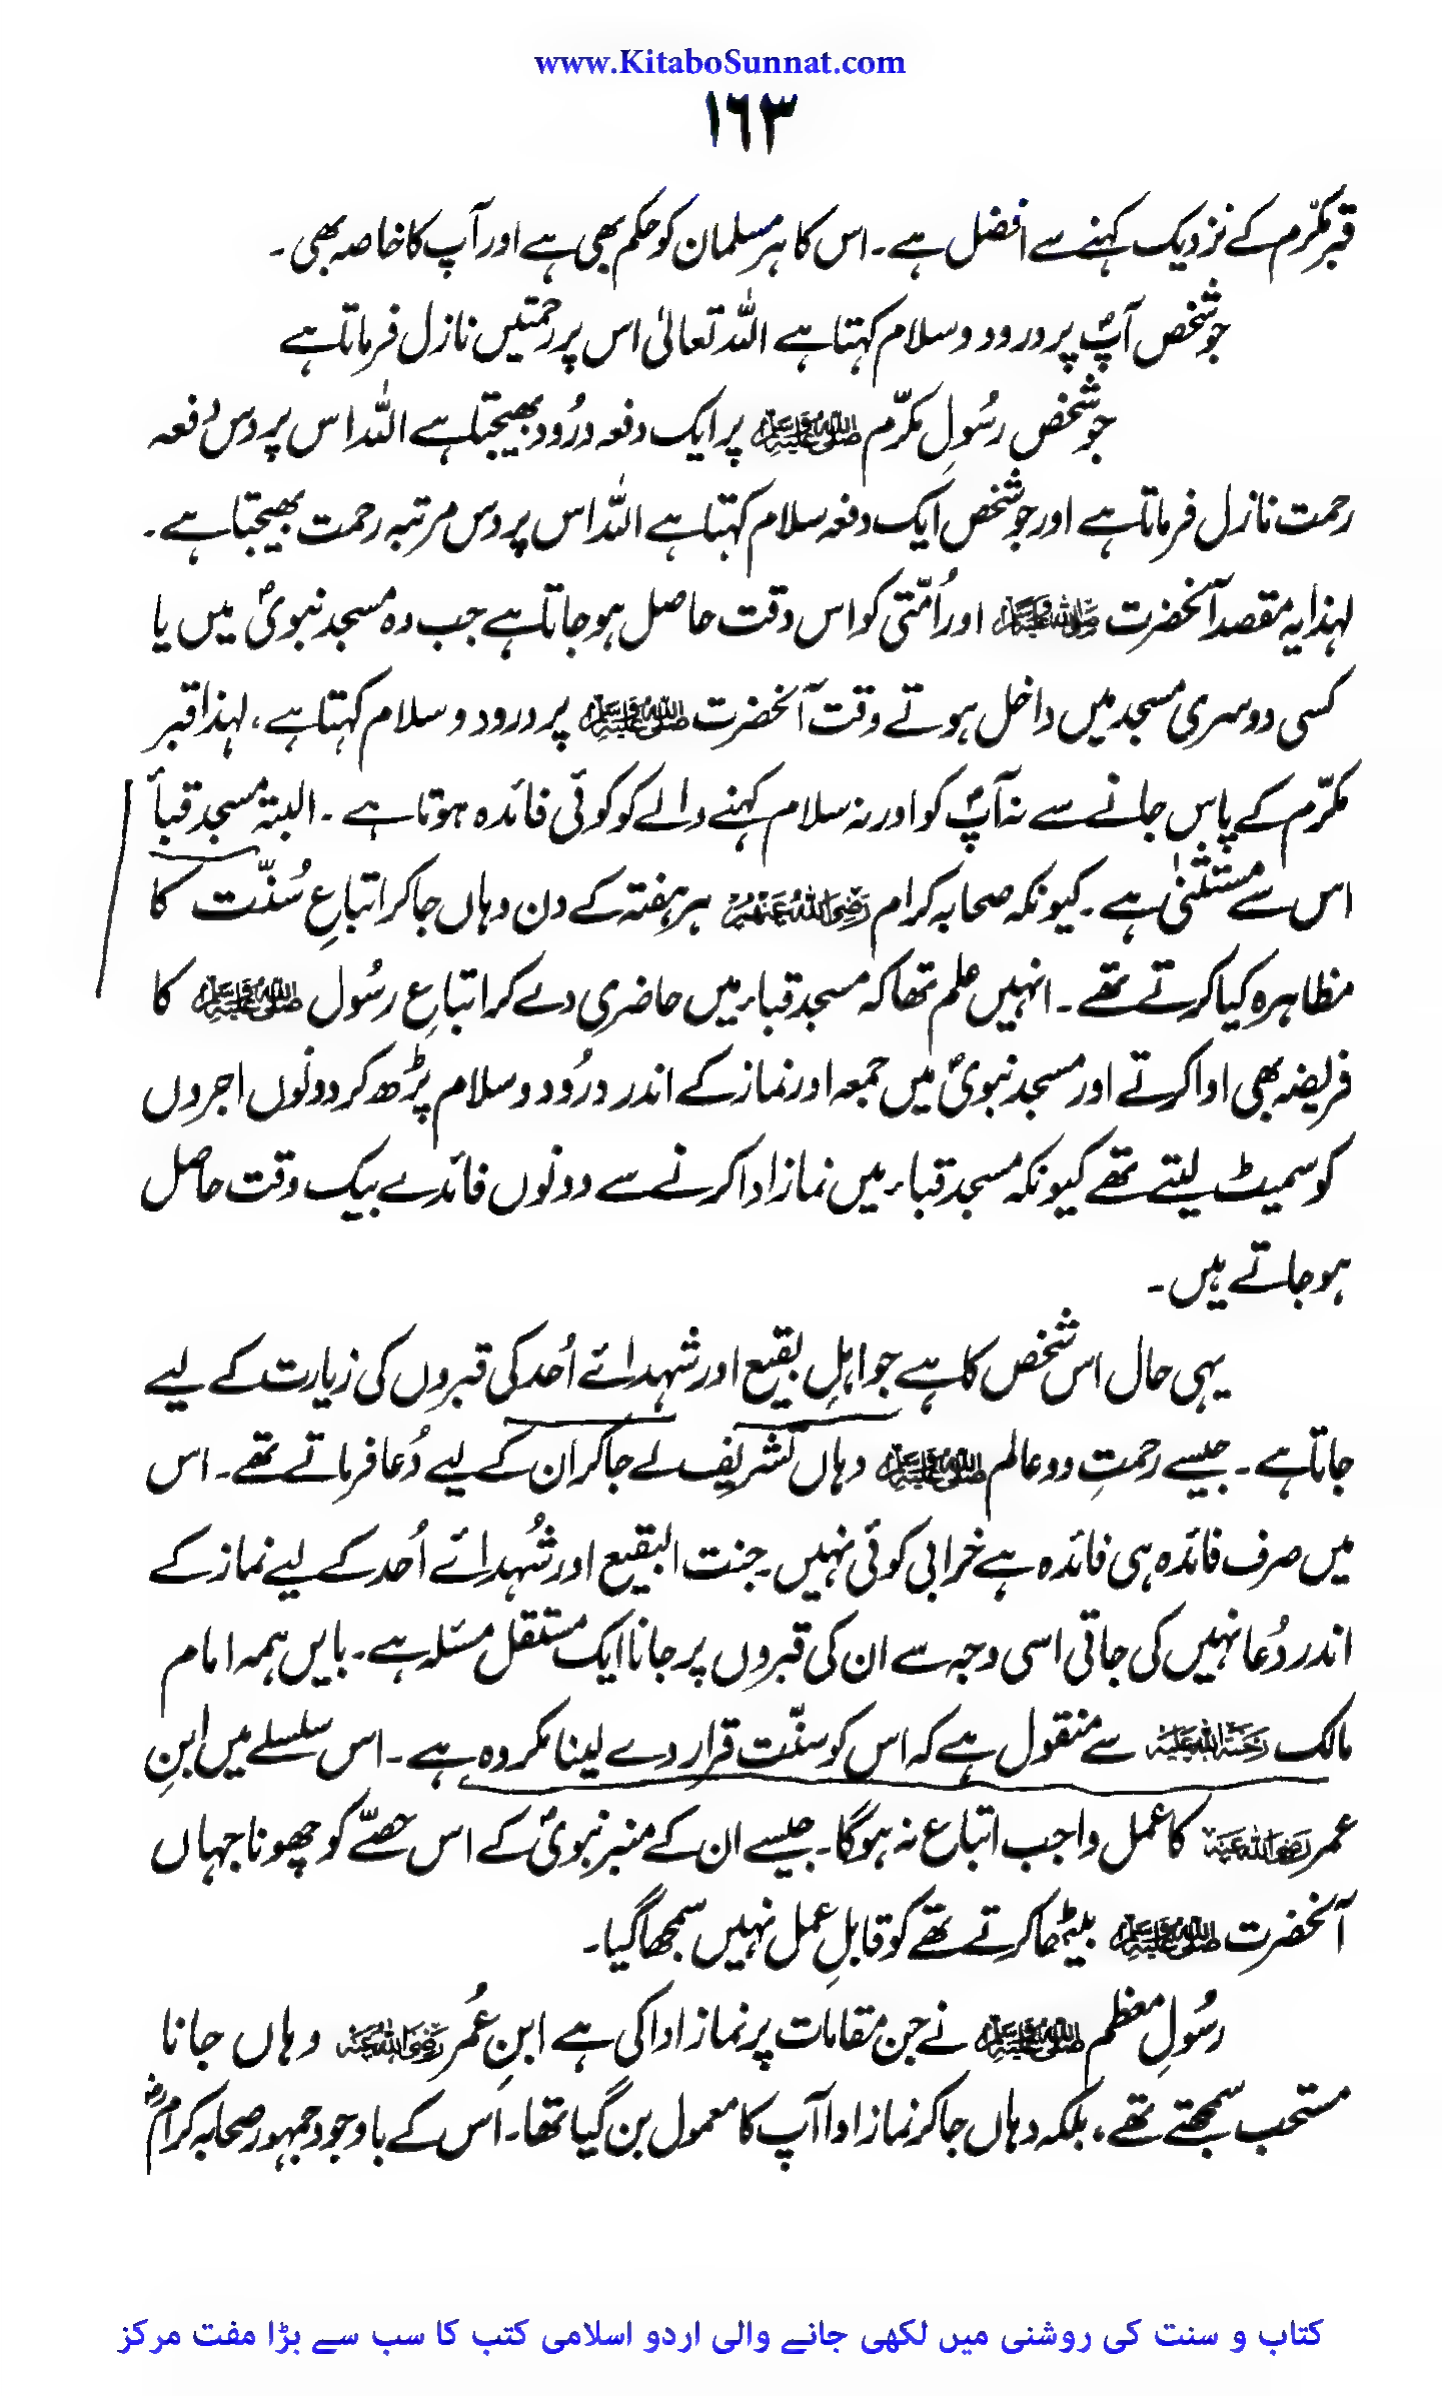 www.KitaboSunnat.com
١٦٣
قبر مکرّم کے نزدیک کہنے سے افضل ہے۔ اس کا ہر مسلمان کو حکم بھی ہے اور آپ کا خاصہ بھی۔
جو شخص آپؐ پر درود و سلام کہتا ہے اللہ تعالیٰ اس پر رحمتیں نازل فرماتا ہے
جو شخص رسُولِ مکرّم ﷺ پر ایک دفعہ درُود بھیجتا ہے اللہ اس پر دس دفعہ
رحمت نازل فرماتا ہے اور جو شخص ایک دفعہ سلام کہتا ہے اللہ اس پر دس مرتبہ رحمت بھیجتا ہے۔
لہذا یہ مقصد آنحضرت ﷺ اور اُمّتی کو اس وقت حاصل ہو جاتا ہے جب وہ مسجد نبویؐ میں یا
کسی دوسری مسجد میں داخل ہوتے وقت آنحضرت ﷺ پر درود و سلام کہتا ہے، لہذا قبر
مکرّم کے پاس جانے سے نہ آپؐ کو اور نہ سلام کہنے والے کو کوئی فائدہ ہوتا ہے۔ البتہ مسجد قبأ
اس سے مستثنیٰ ہے۔ کیونکہ صحابہ کرام رَضِیَ اللہُ عَنْہُم ہر ہفتہ کے دن وہاں جا کر اتباعِ سُنّت کا
مظاہرہ کیا کرتے تھے۔ انہیں علم تھا کہ مسجد قباء میں حاضری دے کر اتباعِ رسُول ﷺ کا
فریضہ بھی ادا کرتے اور مسجد نبویؐ میں جمعہ اور نماز کے اندر درُود و سلام پڑھ کر دونوں اجروں
کو سمیٹ لیتے تھے کیونکہ مسجد قباء میں نماز ادا کرنے سے دونوں فائدے بیک وقت حاصل
ہو جاتے ہیں۔
یہی حال اس شخص کا ہے جو اہلِ بقیع اور شہدائے اُحد کی قبروں کی زیارت کے لیے
جاتا ہے۔ جیسے رحمتِ دو عالم ﷺ وہاں تشریف لے جا کر ان کے لیے دُعا فرماتے تھے۔ اس
میں صرف فائدہ ہی فائدہ ہے خرابی کوئی نہیں۔ جنت البقیع اور شُہدائے اُحد کے لیے نماز کے
اندر دُعا نہیں کی جاتی اسی وجہ سے ان کی قبروں پر جانا ایک مستقل مسئلہ ہے۔ بایں ہمہ امام
مالک رَحْمَۃُ اللہِ عَلَیْہ سے منقول ہے کہ اس کو سنّت قرار دے لینا مکروہ ہے۔ اس سلسلے میں ابنِ
عمر رَضِیَ اللہُ عَنْہ کا عمل واجب اتباع نہ ہوگا۔ جیسے ان کے منبر نبویؐ کے اس حصّے کو چھونا جہاں
آنحضرت ﷺ بیٹھا کرتے تھے کو قابلِ عمل نہیں سمجھا گیا۔
رسُولِ معظم ﷺ نے جن مقامات پر نماز ادا کی ہے ابنِ عُمر رَضِیَ اللہُ عَنْہ وہاں جانا
مستحب سمجھتے تھے، بلکہ وہاں جا کر نماز ادا آپ کا معمول بن گیا تھا۔ اس کے باوجود جمہور صحابہ کرامؓ
کتاب و سنت کی روشنی میں لکھی جانے والی اردو اسلامی کتب کا سب سے بڑا مفت مرکز